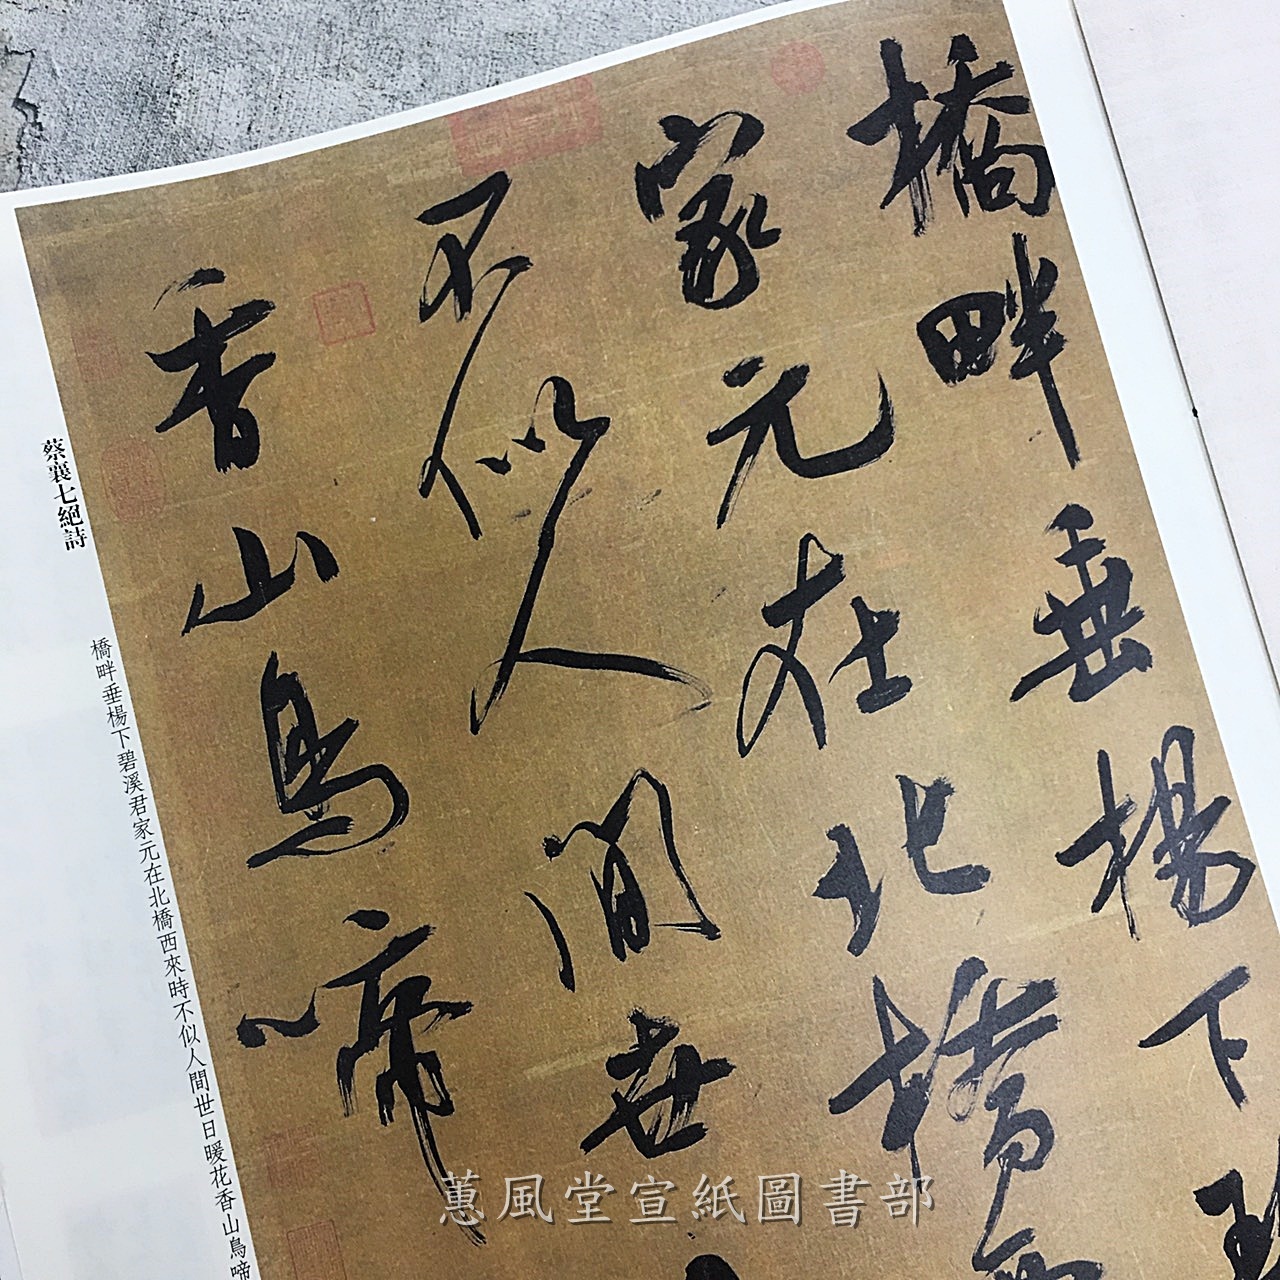 橋畔垂楊下碧
家元在北橋西
不似人間世
香山鳥啼
蔡襄七絕詩
橋畔垂楊下碧溪君家元在北橋西來時不似人間世日暖花香山鳥啼
蕙風堂宣紙圖書部